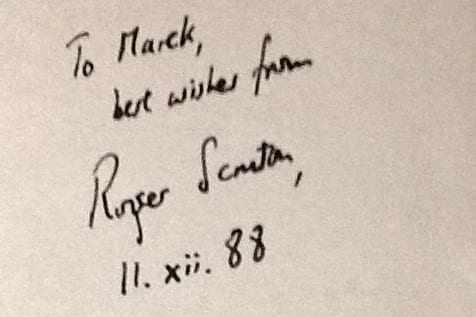 To Marek,
best wishes from
Roger Scruton,
11. xii. 88